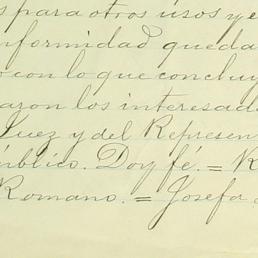 s para otros usos y e
nformidad queda
o con lo que concluy
aron los interesad
Juez y del Represen
úblico. Doy fé. = R
Romano. = Josefa